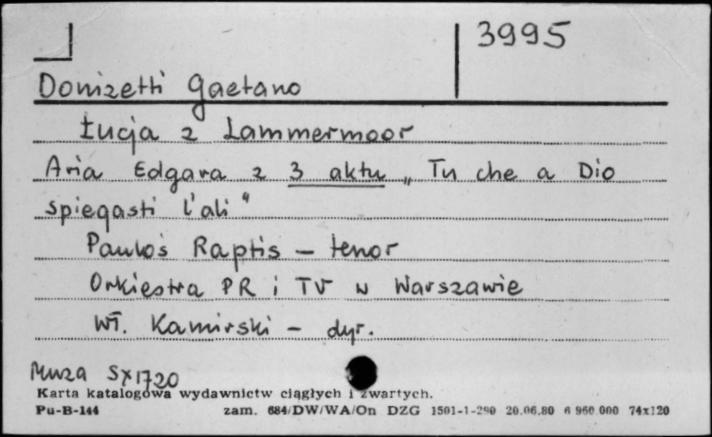 3995
Donizetti Gaetano
Łucja z Lammermoor
Aria Edgara z 3 aktu „Tu che a Dio
spiegasti l'ali"
Paulos Raptis – tenor
Orkiestra PR i TV w Warszawie
Wł. Kamirski – dyr.
Muza SX1720
Karta katalogowa wydawnictw ciągłych i zwartych.
Pu-B-144 zam. 684/DW/WA/On DZG 1501-1-290 20.06.80 6 960 000 74x120